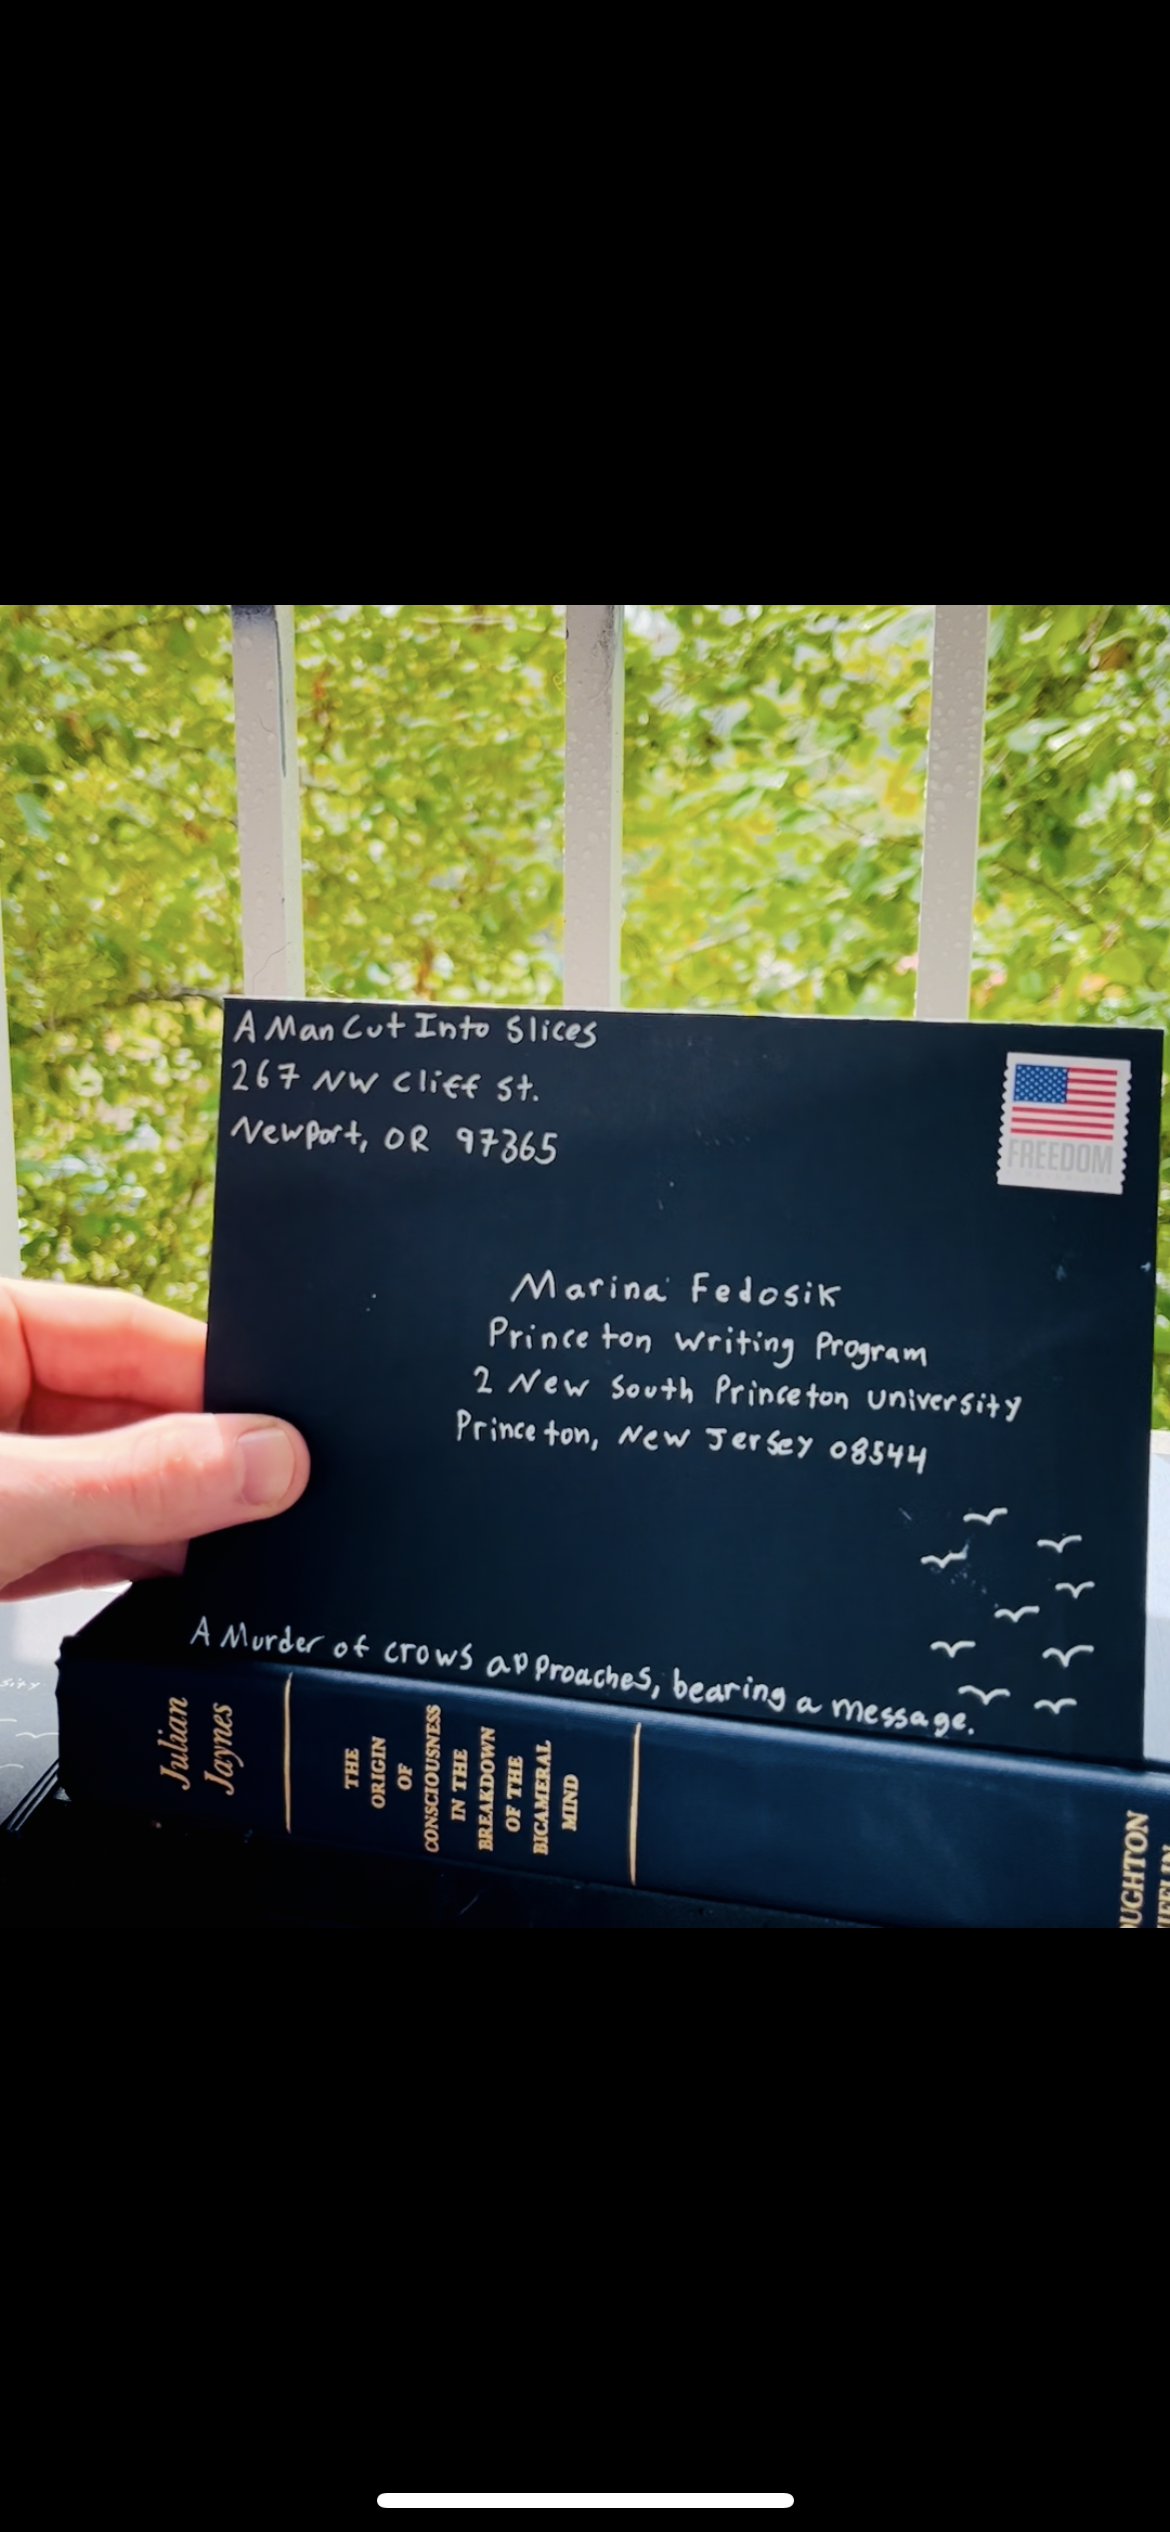 A Man Cut Into Slices
267 NW Cliff St.
Newport, OR 97365
FREEDOM
Marina Fedosik
Princeton Writing Program
2 New South Princeton University
Princeton, New Jersey 08544
A Murder of crows approaches, bearing a message.
Julian
Jaynes
THE
ORIGIN
OF
CONSCIOUSNESS
IN THE
BREAKDOWN
OF THE
BICAMERAL
MIND